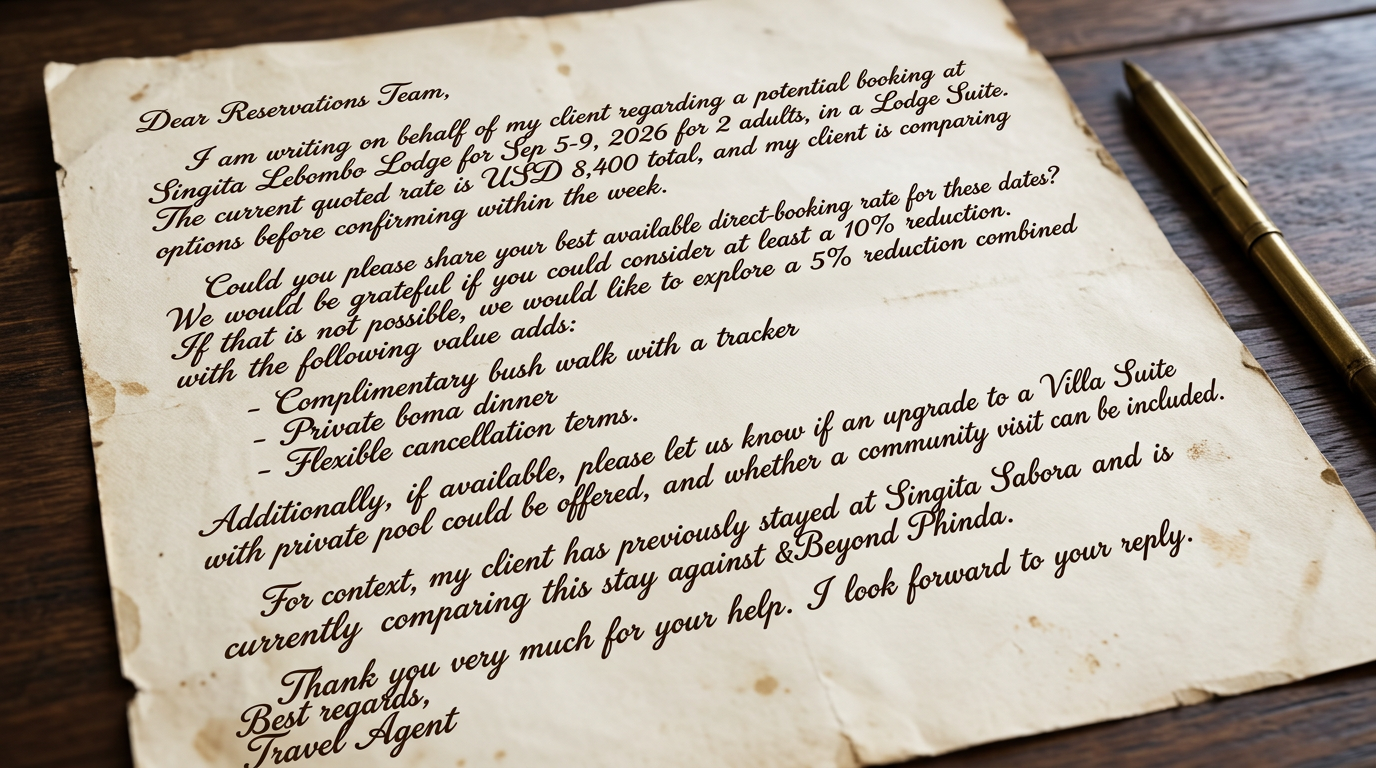 Dear Reservations Team,
I am writing on behalf of my client regarding a potential booking at
Singita Lebombo Lodge for Sep 5-9, 2026 for 2 adults, in a Lodge Suite.
The current quoted rate is USD 8,400 total, and my client is comparing
options before confirming within the week.
Could you please share your best available direct-booking rate for these dates?
We would be grateful if you could consider at least a 10% reduction.
If that is not possible, we would like to explore a 5% reduction combined
with the following value adds:
- Complimentary bush walk with a tracker
- Private boma dinner
- Flexible cancellation terms.
Additionally, if available, please let us know if an upgrade to a Villa Suite
with private pool could be offered, and whether a community visit can be included.
For context, my client has previously stayed at Singita Sabora and is
currently comparing this stay against &Beyond Phinda.
Thank you very much for your help. I look forward to your reply.
Best regards,
Travel Agent